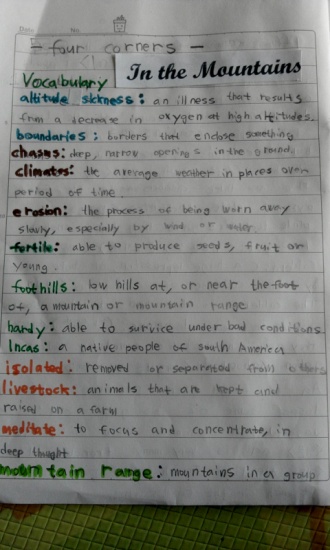 Date No.
- four corners -
In the Mountains
Vocalbulary
altitude sickness: an illness that results
from a decrease in oxygen at high altitudes.
boundaries: borders that enclose something
chasms: deep, narrow openings in the ground
climates: the average weather in places over
period of time.
erosion: the process of being worn away
slowly, especially by wind or water
fertile: able to produce seeds, fruit or
young.
foothills: low hills at, or near the foot
of, a mountain or mountain range
hardy: able to survice under bad conditions
Incas: a native people of south America
isolated: removed or separated from others
livestock: animals that are kept and
raised on a farm
meditate: to focus and concentrate, in
deep thought
mountain range: mountains in a group